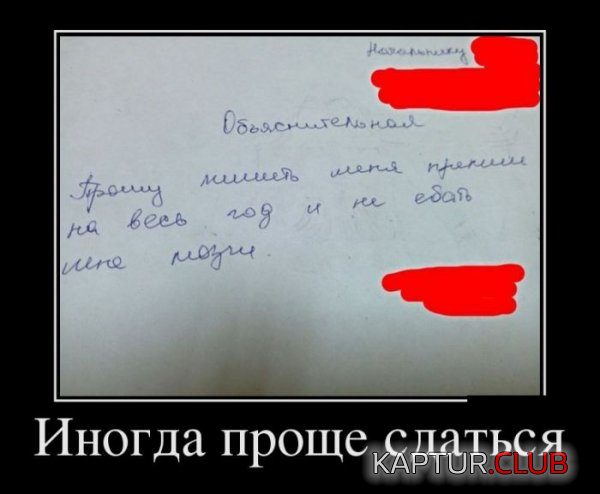 Начальнику
Объяснительная
Прошу лишить меня премии
на весь год и не ебать
мне мозги.
Иногда проще сдаться
KAPTUR.CLUB